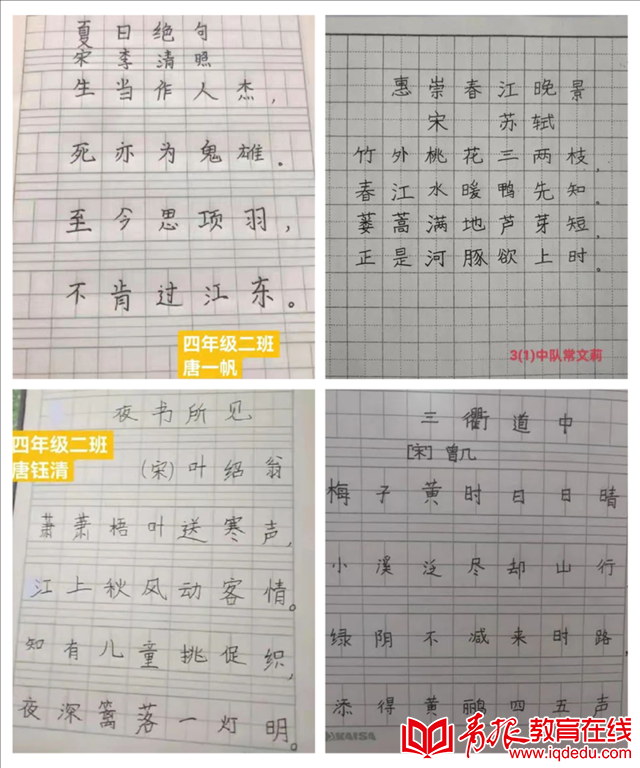 夏日绝句
宋 李清照
生当作人杰，
死亦为鬼雄．
至今思项羽，
不肯过江东。
四年级二班
唐一帆
惠崇春江晚景
宋 苏轼
竹外桃花三两枝，
春江水暖鸭先知．
蒌蒿满地芦芽短，
正是河豚欲上时．
3(1)中队常文莉
夜书所见
四年级二班
唐钰清
(宋)叶绍翁
萧萧梧叶送寒声，
江上秋风动客情。
知有儿童挑促织，
夜深篱落一灯明。
三衢道中
[宋] 曾几
梅子黄时日日晴
小溪泛尽却山行
绿阴不减来时路，
添得黄鹂四五声
KAISA
青报教育在线
www.iqdedu.com